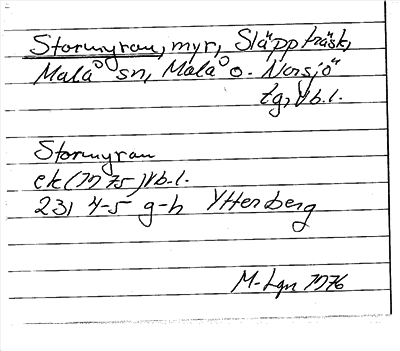 Stormyran, myr, Släppträsk,
Malå sn, Malå o. Norsjö
tg, Vb. l.
Stormyran
ek (1975) Vb. l.
23I 4-5 g-h Ytterberg
M-Lgn 1976